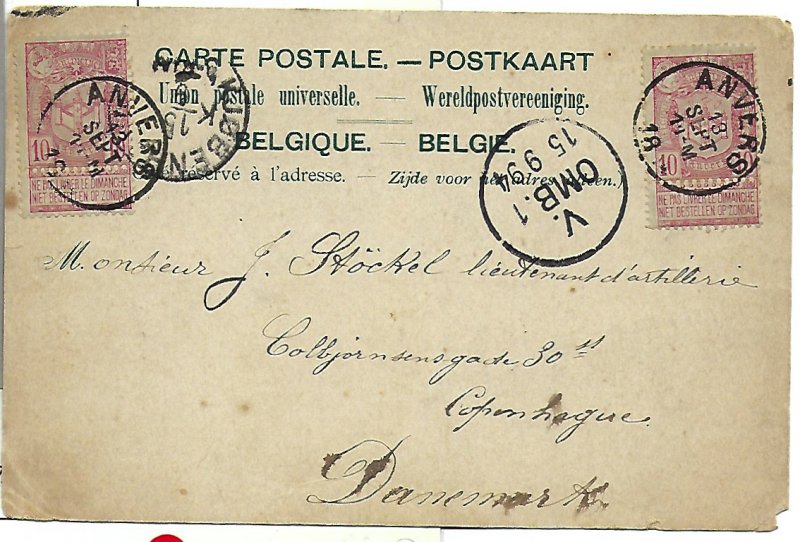 CARTE POSTALE. — POSTKAART
Union postale universelle. — Wereldpostvereeniging.
BELGIQUE. — BELGIE.
réservé à l'adresse. — Zijde voor het adres
10
NE PAS LIVRER LE DIMANCHE
NIET BESTELLEN OP ZONDAG
ANVERS
SEPT
KJØBEN
K
V.
OMB. 1
15 9 94
10
NE PAS LIVRER LE DIMANCHE
NIET BESTELLEN OP ZONDAG
ANVERS
13
SEPT
18
Monsieur J. Stöckel lieutenant d'artillerie
Colbjörnsensgade 30 st
Copenhague.
Danemark